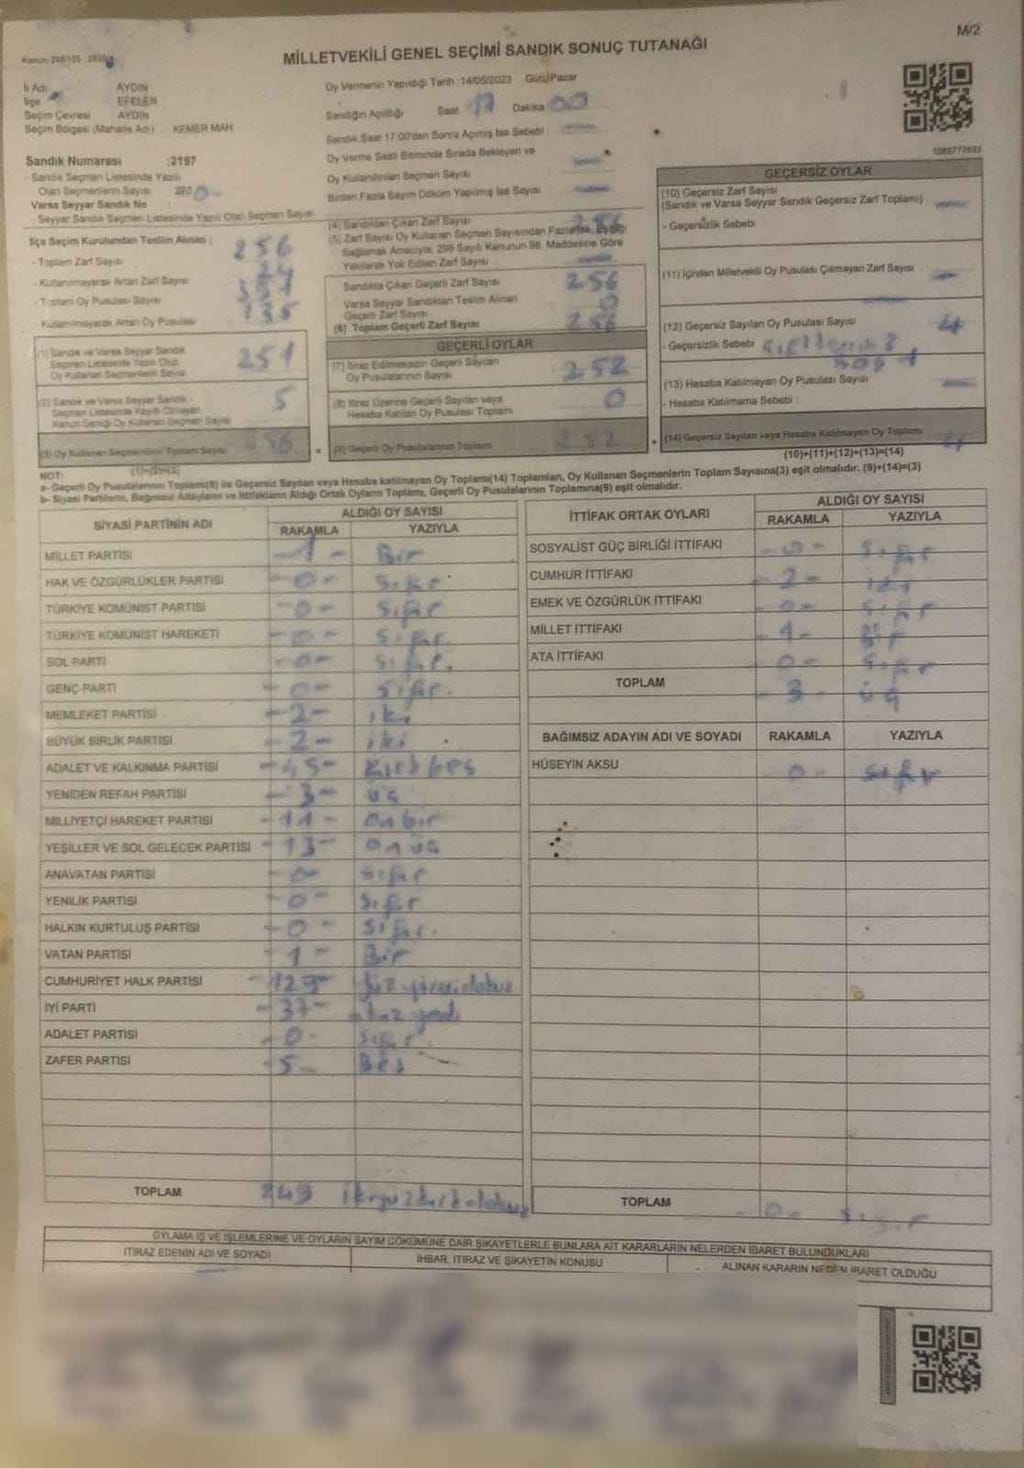 M/2
MİLLETVEKİLİ GENEL SEÇİMİ SANDIK SONUÇ TUTANAĞI
İli Adı AYDIN
İlçe EFELER
Seçim Çevresi AYDIN
Seçim Bölgesi (Mahalle Adı) KEMER MAH
Oy Vermenin Yapıldığı Tarih :14/05/2023 Günü/Pazar
Sandığın Açıldığı Saat 17 Dakika 00
Sandık Saat 17:00'dan Sonra Açılmış İse Sebebi
Oy Verme Saati Bitiminde Sırada Bekleyen ve
Oy Kullandırılan Seçmen Sayısı
Birden Fazla Sayım Döküm Yapılmış İse Sayısı
Sandık Numarası :2197
- Sandık Seçmen Listesinde Yazılı
Olan Seçmenlerin Sayısı
Varsa Seyyar Sandık No :
- Seyyar Sandık Seçmen Listesinde Yazılı Olan Seçmen Sayısı
İlçe Seçim Kurulundan Teslim Alınan :
- Toplam Zarf Sayısı 256
- Kullanılmayarak Artan Zarf Sayısı
- Toplam Oy Pusulası Sayısı
- Kullanılmayarak Artan Oy Pusulası
(1) Sandık ve Varsa Seyyar Sandık
Seçmen Listesinde Yazılı Olup
Oy Kullanan Seçmenlerin Sayısı 251
(2) Sandık ve Varsa Seyyar Sandık
Seçmen Listesinde Kayıtlı Olmayan
Kanun Gereği Oy Kullanan Seçmen Sayısı 5
(3) Oy Kullanan Seçmenlerin Toplam Sayısı 256
(1)+(2)=(3)
(4) Sandıktan Çıkan Zarf Sayısı 256
(5) Zarf Sayısı Oy Kullanan Seçmen Sayısından Fazla ise, Eşitliği
Sağlamak Amacıyla, 298 Sayılı Kanunun 98. Maddesine Göre
Yakılarak Yok Edilen Zarf Sayısı
Sandıkta Çıkan Geçerli Zarf Sayısı 256
Varsa Seyyar Sandıktan Teslim Alınan
Geçerli Zarf Sayısı 0
(6) Toplam Geçerli Zarf Sayısı 256
GEÇERLİ OYLAR
(7) İtiraz Edilmeksizin Geçerli Sayılan
Oy Pusulalarının Sayısı 252
(8) İtiraz Üzerine Geçerli Sayılan veya
Hesaba Katılan Oy Pusulası Toplamı 0
(9) Geçerli Oy Pusulalarının Toplamı 252
GEÇERSİZ OYLAR
(10) Geçersiz Zarf Sayısı
(Sandık ve Varsa Seyyar Sandık Geçersiz Zarf Toplamı)
- Geçersizlik Sebebi
(11) İçinden Milletvekili Oy Pusulası Çıkmayan Zarf Sayısı
(12) Geçersiz Sayılan Oy Pusulası Sayısı 4
- Geçersizlik Sebebi
(13) Hesaba Katılmayan Oy Pusulası Sayısı
- Hesaba Katılmama Sebebi :
(14) Geçersiz Sayılan veya Hesaba Katılmayan Oy Toplamı 4
(10)+(11)+(12)+(13)=(14)
NOT:
a- Geçerli Oy Pusulalarının Toplamı(9) ile Geçersiz Sayılan veya Hesaba katılmayan Oy Toplamı(14) Toplamları, Oy Kullanan Seçmenlerin Toplam Sayısına(3) eşit olmalıdır. (9)+(14)=(3)
b- Siyasi Partilerin, Bağımsız Adayların ve İttifakların Aldığı Ortak Oyların Toplamı, Geçerli Oy Pusulalarının Toplamına(9) eşit olmalıdır.
SİYASİ PARTİNİN ADI ALDIĞI OY SAYISI
RAKAMLA YAZIYLA
MİLLET PARTİSİ -1- Bir
HAK VE ÖZGÜRLÜKLER PARTİSİ -0- Sıfır
TÜRKİYE KOMÜNİST PARTİSİ -0- Sıfır
TÜRKİYE KOMÜNİST HAREKETİ -0- Sıfır
SOL PARTİ -0- Sıfır
GENÇ PARTİ -0- Sıfır
MEMLEKET PARTİSİ -2- iki
BÜYÜK BİRLİK PARTİSİ -2- iki
ADALET VE KALKINMA PARTİSİ -45- Kırk beş
YENİDEN REFAH PARTİSİ -3- üç
MİLLİYETÇİ HAREKET PARTİSİ -11- On bir
YEŞİLLER VE SOL GELECEK PARTİSİ -13- On üç
ANAVATAN PARTİSİ -0- Sıfır
YENİLİK PARTİSİ -0- Sıfır
HALKIN KURTULUŞ PARTİSİ -0- Sıfır
VATAN PARTİSİ -1- Bir
CUMHURİYET HALK PARTİSİ -129- Yüz yirmi dokuz
İYİ PARTİ -37- otuz yedi
ADALET PARTİSİ -0- Sıfır
ZAFER PARTİSİ -5- Beş
TOPLAM 249 ikiyüz kırk dokuz
İTTİFAK ORTAK OYLARI ALDIĞI OY SAYISI
RAKAMLA YAZIYLA
SOSYALİST GÜÇ BİRLİĞİ İTTİFAKI -0- Sıfır
CUMHUR İTTİFAKI -2- iki
EMEK VE ÖZGÜRLÜK İTTİFAKI -0- Sıfır
MİLLET İTTİFAKI -1- Bir
ATA İTTİFAKI -0- Sıfır
TOPLAM -3- üç
BAĞIMSIZ ADAYIN ADI VE SOYADI RAKAMLA YAZIYLA
HÜSEYİN AKSU -0- Sıfır
TOPLAM -0- Sıfır
OYLAMA İŞ VE İŞLEMLERİNE VE OYLARIN SAYIM DÖKÜMÜNE DAİR ŞİKAYETLERLE BUNLARA AİT KARARLARIN NELERDEN İBARET BULUNDUKLARI
İTİRAZ EDENİN ADI VE SOYADI İHBAR, İTİRAZ VE ŞİKAYETİN KONUSU ALINAN KARARIN NEDEN İBARET OLDUĞU